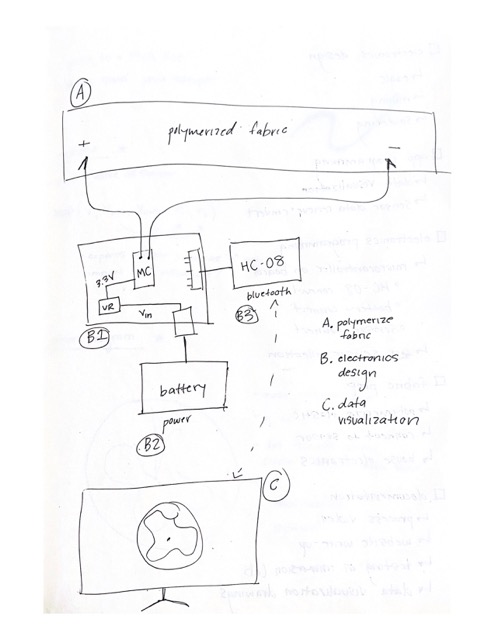 A
polymerized fabric
+
−
MC
3.3V
VR
Vin
HC-08
bluetooth
B3
B1
battery
power
B2
A. polymerize
fabric
B. electronics
design
C. data
visualization
C